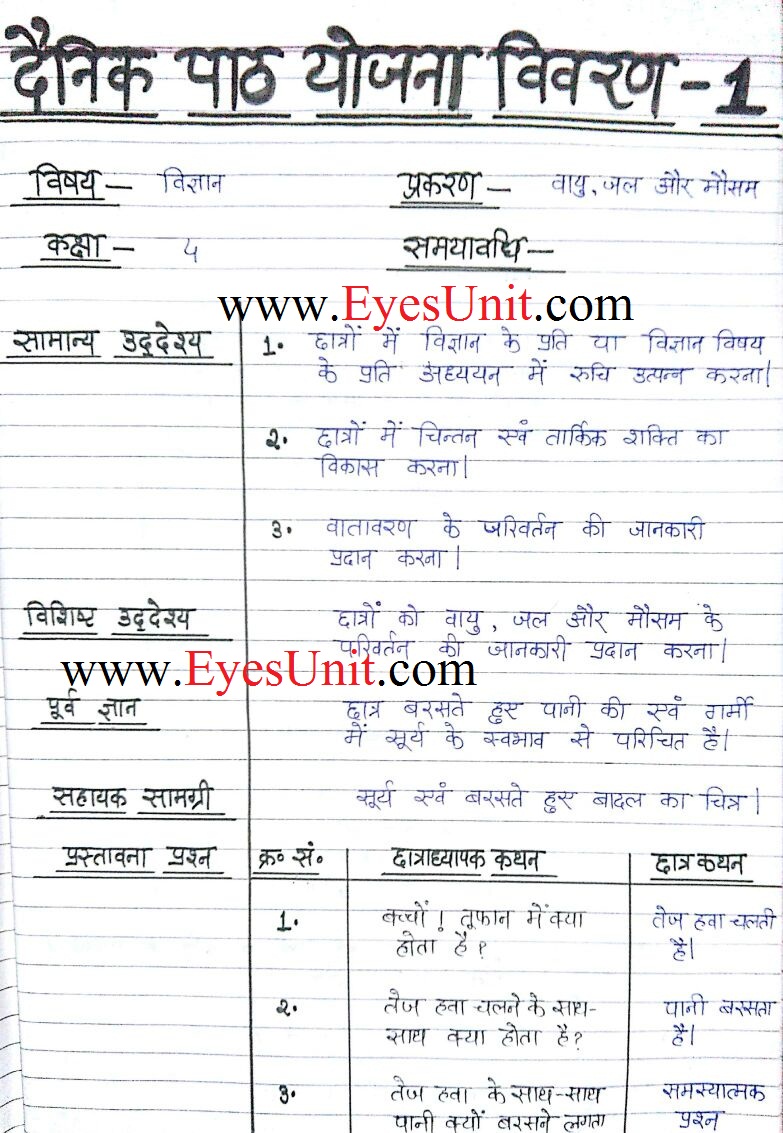 दैनिक पाठ योजना विवरण - 1
विषय - विज्ञान प्रकरण - वायु, जल और मौसम
कक्षा - ५ समयावधि -
www.EyesUnit.com
सामान्य उद्देश्य 1. छात्रों में विज्ञान के प्रति या विज्ञान विषय
के प्रति अध्ययन में रुचि उत्पन्न करना।
2. छात्रों में चिन्तन एवं तार्किक शक्ति का
विकास करना।
3. वातावरण के परिवर्तन की जानकारी
प्रदान करना।
विशिष्ट उद्देश्य छात्रों को वायु, जल और मौसम के
परिवर्तन की जानकारी प्रदान करना।
www.EyesUnit.com
पूर्व ज्ञान छात्र बरसते हुए पानी की एवं गर्मी
में सूर्य के स्वभाव से परिचित है।
सहायक सामग्री सूर्य एवं बरसते हुए बादल का चित्र।
प्रस्तावना प्रश्न क्र॰ सं॰ छात्राध्यापक कथन छात्र कथन
1. बच्चों! तूफान में क्या तेज हवा चलती
होता है? है।
2. तेज हवा चलने के साथ- पानी बरसता
साथ क्या होता है? है।
3. तेज हवा के साथ-साथ समस्यात्मक
पानी क्यों बरसने लगता प्रश्न